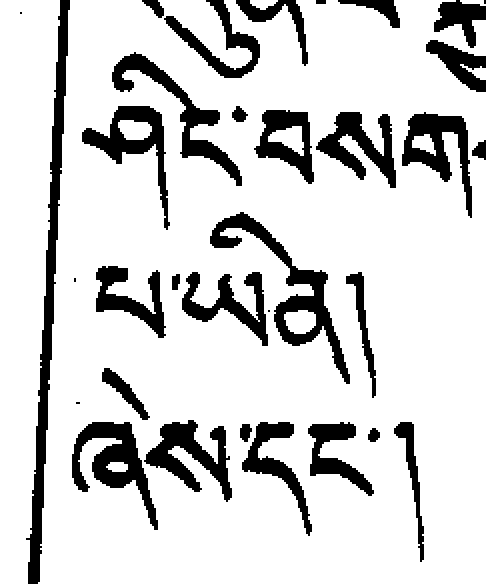 ཤིང་བསག
པ་ཡིན།
ཞེས་དང་།